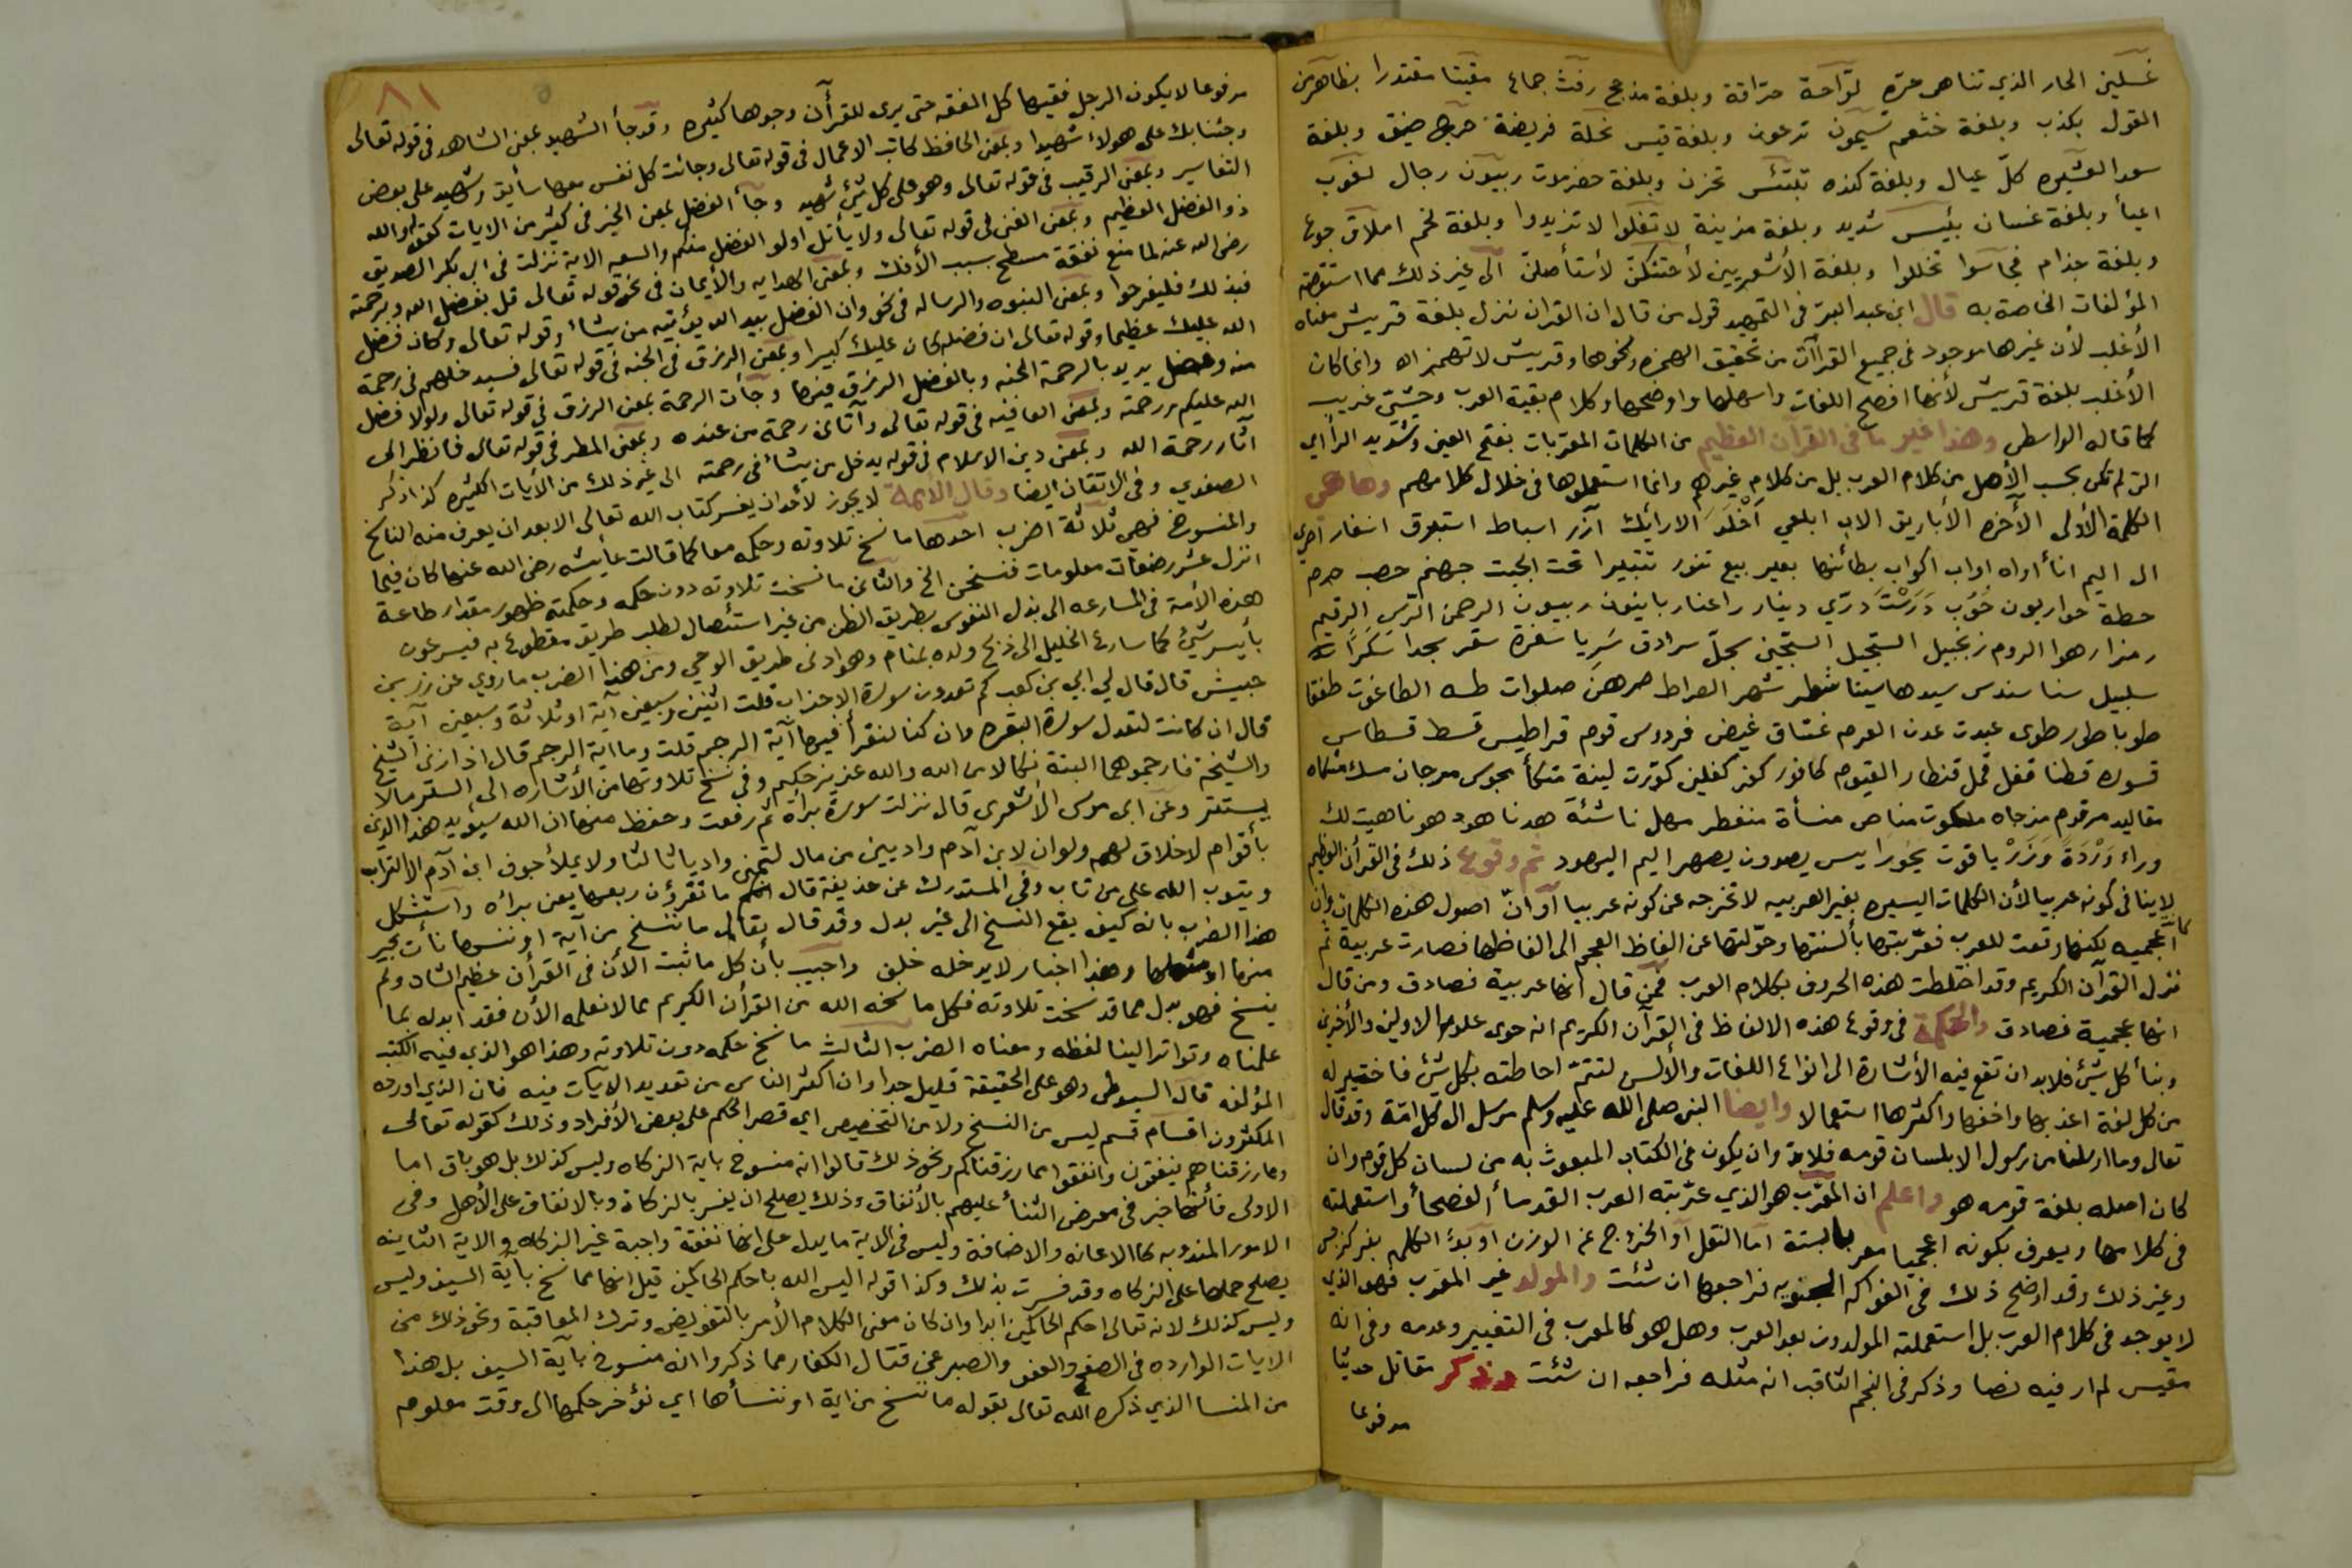 غسلين الحار الذي تناهى حره لوّاحة حرّاقة وبلغة مذحج رفث جماع مقيتا مقتدرا بظاهر من
القول بكذب وبلغة خثعم تسيمون ترعون وبلغة قيس نحلة فريضة حرج ضيق وبلغة
سعد العشيره كلّ عيال وبلغة كنده تبتئس تحزن وبلغة حضرموت ربيون رجال لغوب
اعيأ وبلغة غسان بئيس شديد وبلغة مزينة لا تغلوا لا تزيدوا وبلغة لخم املاق جوع
وبلغة جذام فجاسوا تخللوا وبلغة الأشعريين لأحتنكنّ لأستأصلنّ الى غير ذلك مما استوقته
المؤلفات الخاصة به قال ابن عبد البرّ في التمهيد قول من قال ان القران نزل بلغة قريش معناه
الأغلب لأن غيرها موجود في جميع القراآت من تحقيق الهمزه ونحوها وقريش لا تهمز اه وانما كان
الأغلب بلغة قريش لأنها افصح اللغات واسهلها واوضحها وكلام بقية العرب وحشيّ غريب
كما قاله الواسطي وهذا غير ما في القرآن العظيم من الكلمات المعرّبات بفتح العين وشديد الرأ اي
التي لم تكن بحسب الأصل من كلام العرب بل من كلام غيرهم وانما استعملوها في خلال كلامهم وها هي
الكلمة الأولى الآخره الأباريق الاب ابلعي أخلد الارائك آزر اسباط استبرق اسفار اصري
ال اليم انأ أواه اواب اكواب بطائنها بعير بيع تنور تتبيرا تحت الجبت جهنم حصب حرم
حطة حواريون حُوب دَرَسْتَ درّي دينار راعنا ربانيون ربيون الرحمن الرّس الرقيم
رمزا رهوا الروم زنجبيل السّجيل السّجّين سجلّ سرادق سَرِيا سفرة سقر سجدا سَكَرًا
سلبيل سنا سندس سيدها سينا شطر شهر الصراط صرهنّ صلوات طه الطاغوت طفقا
طوبا طور طوى عبدت عدن العرم غسّاق غيض فردوس قوم قراطيس قسط قسطاس
قسوره قطنا قفل قمل قنطار القيوم كافور كنز كفلين كوّرت لينة متكأ مجوس مرجان مسك مشكاه
مقاليد مرقوم مزجاه ملكوت مناص منسأة منفطر مهل ناشئة هدنا هود هونا هيت لك
وراء وَرْدَةً وَزَرْ ياقوت يحور ايس يصدون يصهر اليم اليهود ثم وقوع ذلك في القرأن العظيم
لا ينافى كونه عربيا لأن الكلمات اليسيره بغير العربيه لا تخرجه عن كونه عربيا أو أنّ اصول هذه الكلمات وان
كانت أعجميه لكنها وقعت للعرب فعرّبتها بألسنتها وحوّلتها عن الفاظ العجم الى الفاظها فصارت عربية ثم
نزل القرآن الكريم وقد اختلطت هذه الحروف بكلام العرب فمن قال أنها عربية فصادق ومن قال
انها عجمية فصادق والحكمة في وقوع هذه الالفاظ في القرآن الكريم انه حوى علوم الاولين والأخرين
ونبأ كل شيئ فلابد ان تقع فيه الأشارة الى انواع اللغات والألسن لتتمّ احاطته بكل شئ فاختير له
من كل لغة اعذبها واخفها واكثرها استعمالا وايضا النبي صلى الله عليه وسلم مرسل الى كل امّة وقد قال
تعالى وما ارسلنا من رسول الا بلسان قومه فلابد وان يكون في الكتاب المبعوث به من لسان كل قوم وان
كان اصله بلغة قومه هو واعلم ان المعّرب هو الذي عرّبته العرب القدمأ الفصحأ واستعملته
في كلامها ويعرف بكونه اعجميا معربا بستة اما النقل أو الخروج عن الوزن أو بدؤ الكلمه بنر كنرجس
وغير ذلك وقد اوضح ذلك في الفواكه الجنويه فراجعها ان شئت والمولد غير المعرب فهو الذي
لا يوجد في كلام العرب بل استعملته المولدون بعد العرب وهل هو كالمعرب في التغيير وعدمه وفي انه
مقيس لم ار فيه نصا وذكر في النجم الثاقب انه مثله فراجعه ان شئت وذكر مقاتل حديثا
مرفوعا
٨١
مرفوعا لا يكون الرجل فقيها كل الفقه حتى يرى للقرآن وجوها كثيره وقد جأ الشهيد بمعنى الشاهد في قوله تعالى
وجئنا بك على هولاء شهيدا وبمعنى الحافظ كاتب الاعمال في قوله تعالى وجائت كل نفس معها سأيق وشهيد على بعض
التفاسير وبمعنى الرقيب في قوله تعالى وهو على كل شيئ شهيد وجأ الفضل بمعنى الخير في كثير من الايات كقوله والله
ذو الفضل العظيم وبمعنى الغنى في قوله تعالى ولا يأتل اولو الفضل منكم والسعه الاية نزلت في ابي بكر الصديق
رضى الله عنه لما منع نفقة مسطح بسبب الأفك وبمعنى الهدايه والأيمان في نحو قوله تعالى قل بفضل الله وبرحمته
فبذلك فليفرحوا وبمعنى النبوه والرساله في نحو وان الفضل بيد الله يؤتيه من يشاء وقوله تعالى وكان فضل
الله عليك عظيما وقوله تعالى ان فضله كان عليك كبيرا وبمعنى الرزق في الجنه في قوله تعالى فسيدخلهم في رحمة
منه وفضل يريد بالرحمة الجنه وبالفضل الرزق فيها وجأت الرحمة بمعنى الرزق في قوله تعالى ولولا فضل
الله عليكم ورحمته وبمعنى العافيه في قوله تعالى وآتاني رحمة من عنده وبمعنى المطر في قوله تعالى فانظر الى
آثار رحمة الله وبمعنى دين الاسلام في قوله يدخل من يشأ في رحمته الى غير ذلك من الأيات الكثيره كذا ذكر
الصفدي وفي الاتقان ايضا وقال الأيمة لا يجوز لأحد ان يفسر كتاب الله تعالى الا بعد ان يعرف منه الناسخ
والمنسوخ فهي ثلاثة اضرب احدها ما نسخ تلاوته وحكمه معا كما قالت عأيشه رضى الله عنها كان فيما
انزل عشر رضعات معلومات فنسخن الخ والثاني ما نسخت تلاوته دون حكمه وحكمته ظهور مقدار طاعة
هذه الأمة في المسارعه الى بذل النفوس بطريق الظن من غير استئصال لطلب طريق مقطوع به فيسرعون
بأيسر شئ كما سارع الخليل الى ذبح ولده بمنام وهو ادنى طريق الوحي ومن هذا الضرب ما روي عن زر بن
حبيش قال قال لي ابي بن كعب كم تعدون سورة الاحزاب قلت اثنين وسبعين آية او ثلاثة وسبعين آية
قال ان كانت لتعدل سورة البقره وان كنا لنقرأ فيها آية الرجم قلت وما اية الرجم قال اذا زنى الشيخ
والشيخة فارجموهما البتة نكالا من الله والله عزيز حكيم وفي نسخ تلاوتها من الأشاره الى السقر مالا
يستقر وعن ابى موسى الأشعرى قال نزلت سورة برأة ثم رفعت وحفظ منها ان الله سيؤيد هذا الدين
بأقوام لا خلاق لهم ولو ان لابن آدم واديين من مال لتمنى واديا ثالثا ولا يملأ جوف ابن آدم الا التراب
ويتوب الله على من تاب وفي المستدرك عن حذيفة قال انكم ما تقرؤن ربعها يعنى براه وأستشكل
هذا الضرب بانه كيف يقع النسخ الى غير بدل وقد قال تعالى ما ننسخ من آية او ننسها نأت بخير
منها او مثلها وهذا اخبار لا يدخله خلف واجيب بأن كل ما ثبت الأن في القرأن عظيم الشان ولم
ينسخ فهو بدل مما قد نسخت تلاوته فكل ما نسخه الله من القرأن الكريم مما لا نعلمه الأن فقد ابدله بما
علمناه وتواتر الينا لفظه ومعناه الضرب الثالث ما نسخ حكمه دون تلاوته وهذا هو الذي فيه الكتب
المؤلفه قال السيوطى وهو على الحقيقة قليل جدا وان اكثر الناس من تعديد الآيات فيه فان الذي اورده
المكثرون اقسام قسم ليس من النسخ ولا من التخصيص اي قصر الحكم على بعض الأفراد وذلك كقوله تعالى
ومما رزقناهم ينفقون وانفقوا مما رزقناكم ونحو ذلك قالوا انه منسوخ باية الزكاه وليس كذلك بل هو باق اما
الاولى فأنها خبر في معرض الثنأ عليهم بالأنفاق وذلك يصلح ان يفسر بالزكاة وبالانفاق على الأهل وفى
الامور المندوبه كالاعانه والاضافة وليس في الاية ما يدل على انها نفقة واجبة غير الزكاه والاية الثانيه
يصلح حملها على الزكاه وقد فسرت بذلك وكذا قوله اليس الله باحكم الحاكمين قيل انها مما نسخ بأية السيف وليس
وليس كذلك لانه تعالى احكم الحاكمين ابدا وان كان معنى الكلام الأمر بالتفويض وترك المعاقبة ونحو ذلك من
الايات الوارده في الصفح والعفو والصبر عن قتال الكفار مما ذكروا انه منسوخ بآية السيف بل هذا
من المنسا الذي ذكره الله تعالى بقوله ما ننسخ من اية او ننسأها اي نؤخر حكمها الى وقت معلوم